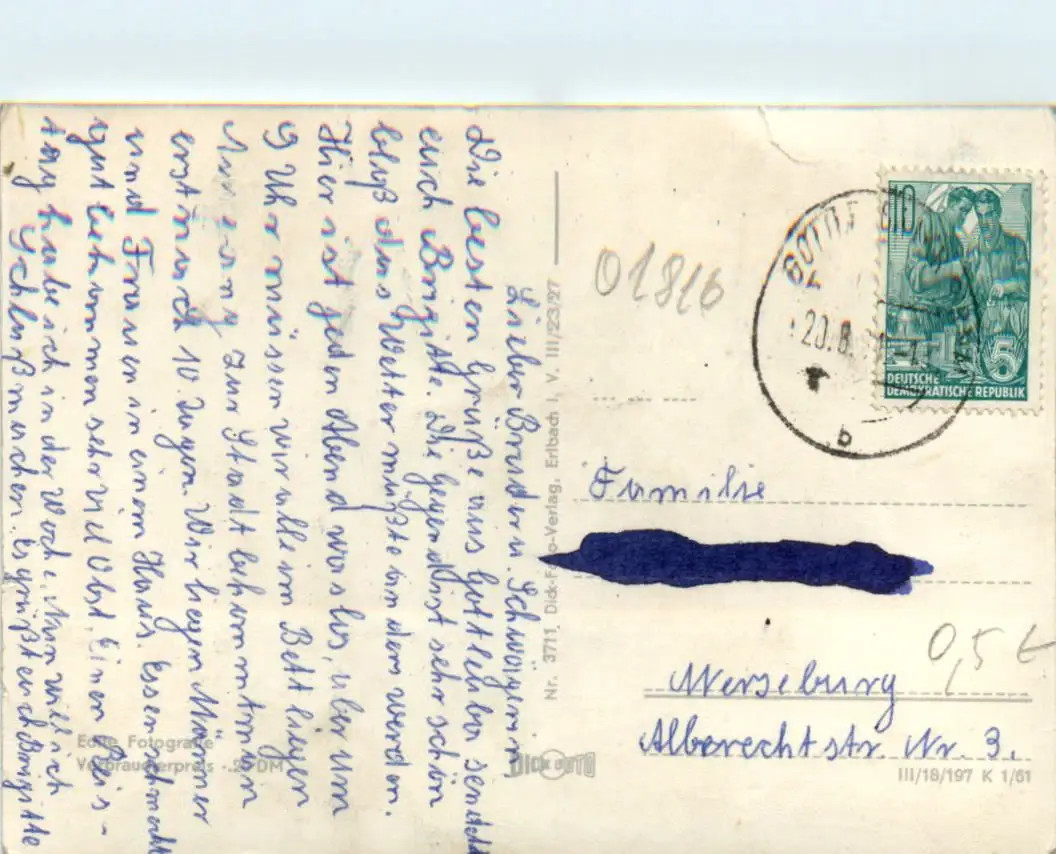 Lieber Bruder u. Schwägerin
Die besten Grüße aus Gottleuba sendet
euch Brigitte. Die Gegend ist sehr schön
bloß das Wetter müßte anders werden.
Hier ist jeden Abend was los, aber um
9 Uhr müssen wir alle im Bett liegen
zur Stadt bekommt man
erst nach 10 Tagen. Wir liegen Männer
und Frauen in einem Haus. Essen schmeckt
gut bekommen sehr viel Obst. Einen
tag habe ich in der Woche. Nun will ich
Schluß machen. Es grüßt euch Brigitte
Echte Fotografie
Verbraucherpreis -.25 DM
Nr. 3711, Dick-Foto-Verlag, Erlbach i. V. III/23/27
DICK FOTO
01816
10
5
DEUTSCHE
DEMOKRATISCHE REPUBLIK
20.8.
b
Familie
Merseburg
Alberechtstr. Nr. 3.
0,5 t
III/18/197 K 1/61